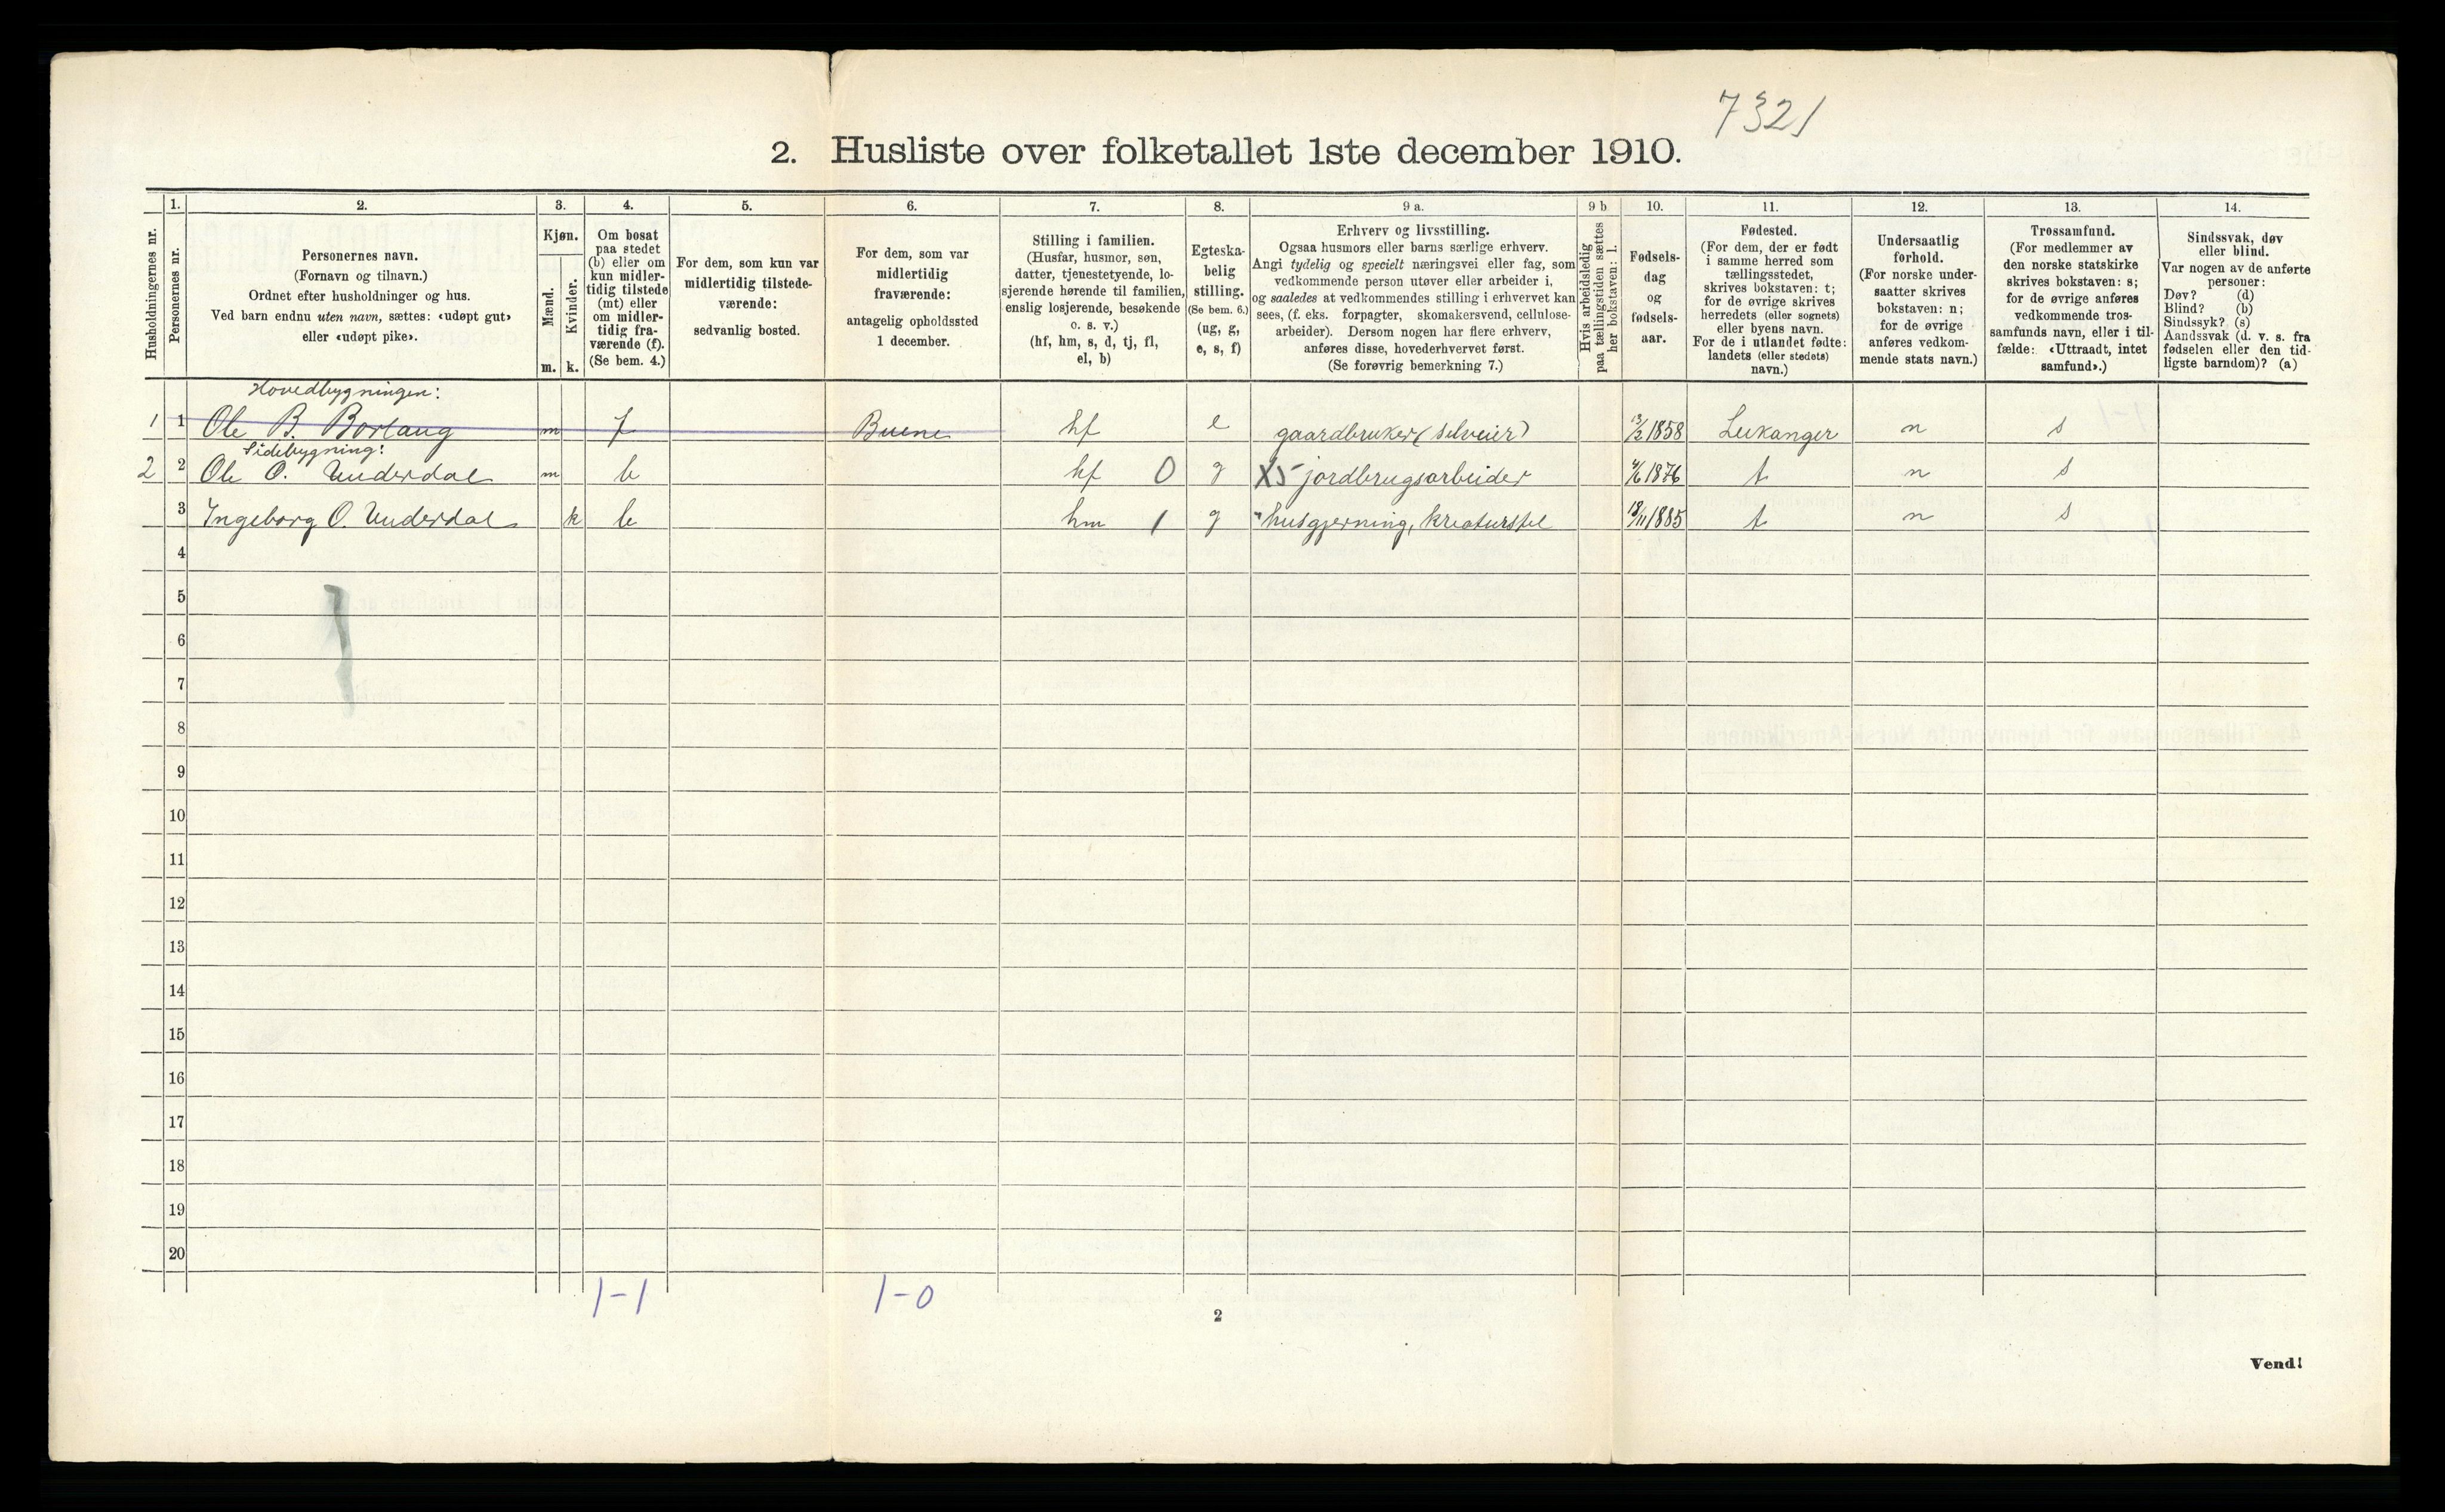 7321
2. Husliste over folketallet 1ste december 1910.
1. 2. 3. 4. 5. 6. 7. 8. 9 a. 9 b 10. 11. 12. 13. 14.
Husholdningernes nr.
Personernes nr.
Personernes navn.
(Fornavn og tilnavn.)
Ordnet efter husholdninger og hus.
Ved barn endnu uten navn, sættes: «udøpt gut»
eller «udøpt pike».
Kjøn.
Mænd.
Kvinder.
m. k.
Om bosat
paa stedet
(b) eller om
kun midler-
tidig tilstede
(mt) eller
om midler-
tidig fra-
værende (f).
(Se bem. 4.)
For dem, som kun var
midlertidig tilstede-
værende:
sedvanlig bosted.
For dem, som var
midlertidig
fraværende:
antagelig opholdssted
1 december.
Stilling i familien.
(Husfar, husmor, søn,
datter, tjenestetyende, lo-
sjerende hørende til familien,
enslig losjerende, besøkende
o. s. v.)
(hf, hm, s, d, tj, fl,
el, b)
Egteska-
belig
stilling.
(Se bem. 6.)
(ug, g,
e, s, f)
Erhverv og livsstilling.
Ogsaa husmors eller barns særlige erhverv.
Angi tydelig og specielt næringsvei eller fag, som
vedkommende person utøver eller arbeider i,
og saaledes at vedkommendes stilling i erhvervet kan
sees, (f. eks. forpagter, skomakersvend, cellulose-
arbeider). Dersom nogen har flere erhverv,
anføres disse, hovederhvervet først.
(Se forøvrig bemerkning 7.)
Hvis arbeidsledig
paa tællingstiden sættes
her bokstaven: l.
Fødsels-
dag
og
fødsels-
aar.
Fødested.
(For dem, der er født
i samme herred som
tællingsstedet,
skrives bokstaven: t;
for de øvrige skrives
herredets (eller sognets)
eller byens navn.
For de i utlandet fødte:
landets (eller stedets)
navn.)
Undersaatlig
forhold.
(For norske under-
saatter skrives
bokstaven: n;
for de øvrige
anføres vedkom-
mende stats navn.)
Trossamfund.
(For medlemmer av
den norske statskirke
skrives bokstaven: s;
for de øvrige anføres
vedkommende tros-
samfunds navn, eller i til-
fælde: «Uttraadt, intet
samfund».)
Sindssvak, døv
eller blind.
Var nogen av de anførte
personer:
Døv? (d)
Blind? (b)
Sindssyk? (s)
Aandssvak (d. v. s. fra
fødselen eller den tid-
ligste barndom)? (a)
Hovedbygningen:
1 1 Ole B. Borlaug m f Buene hf e gaardbruker (selveier) 13/2 1858 Leikanger n s
Sidebygning:
2 2 Ole O. Underdal m b hf 0 g X5 jordbrugsarbeider 4/6 1876 t n s
3 Ingeborg O. Underdal k b hm 1 g " husgjerning, kreaturstel 18/11 1885 t n s
4
5
6
7
8
9
10
11
12
13
14
15
16
17
18
19
20
1-1 1-0
2
Vend!